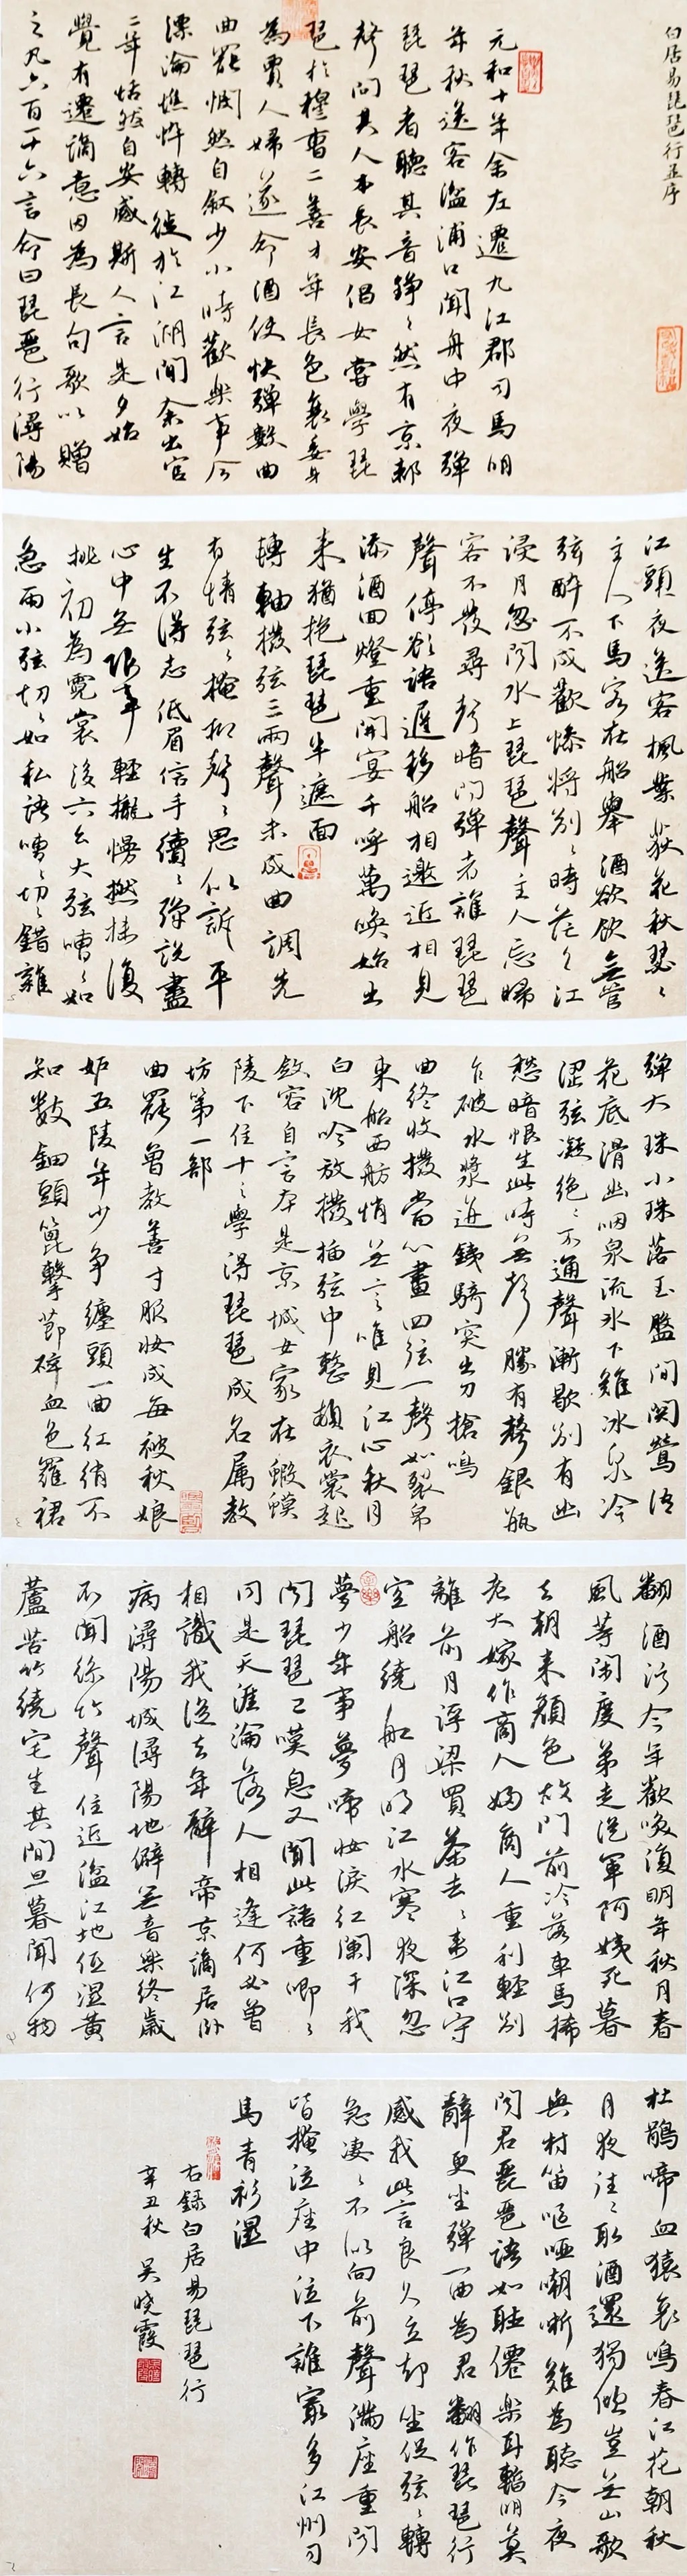 白居易琵琶行并序
元和十年余左遷九江郡司馬明
年秋送客湓浦口聞舟中夜彈
琵琶者聽其音錚々然有京都
聲問其人本長安倡女嘗學琵
琶於穆曹二善才年長色衰委身
為賈人婦遂命酒使快彈數曲
曲罷憫然自敘少小時歡樂事今
漂淪憔悴轉徙於江湖間余出官
二年恬然自安感斯人言是夕始
覺有遷謫意因為長句歌以贈
之凡六百一十六言命曰琵琶行潯陽
江頭夜送客楓葉荻花秋瑟々
主人下馬客在船舉酒欲飲無管
弦醉不成歡慘將別々時茫々江
浸月忽聞水上琵琶聲主人忘歸
客不發尋聲暗問彈者誰琵琶
聲停欲語遲移船相邀近相見
添酒回燈重開宴千呼萬喚始出
來猶抱琵琶半遮面
轉軸撥弦三兩聲未成曲調先
有情弦々掩抑聲々思似訴平
生不得志低眉信手續々彈說盡
心中無限事輕攏慢撚抹復
挑初為霓裳後六幺大弦嘈々如
急雨小弦切々如私語嘈々切々錯雜
彈大珠小珠落玉盤間關鶯語
花底滑幽咽泉流水下難冰泉冷
澀弦凝絕々不通聲漸歇別有幽
愁暗恨生此時無聲勝有聲銀瓶
乍破水漿迸鐵騎突出刀槍鳴
曲終收撥當心畫四弦一聲如裂帛
東船西舫悄無言唯見江心秋月
白沈吟放撥插弦中整頓衣裳起
斂容自言本是京城女家在蝦蟆
陵下住十三學得琵琶成名屬教
坊第一部
曲罷曾教善才服妝成每被秋娘
妒五陵年少爭纏頭一曲紅綃不
知數鈿頭篦擊節碎血色羅裙
翻酒污今年歡笑復明年秋月春
風等閑度弟走從軍阿姨死暮
去朝來顏色故門前冷落車馬稀
老大嫁作商人婦商人重利輕別
離前月浮梁買茶去々來江口守
空船繞船月明江水寒夜深忽
夢少年事夢啼妝淚紅闌干我
聞琵琶已嘆息又聞此語重唧々
同是天涯淪落人相逢何必曾
相識我從去年辭帝京謫居臥
病潯陽城潯陽地僻無音樂終歲
不聞絲竹聲住近湓江地低濕黃
蘆苦竹繞宅生其間旦暮聞何物
杜鵑啼血猿哀鳴春江花朝秋
月夜往々取酒還獨傾豈無山歌
與村笛嘔啞嘲哳難為聽今夜
聞君琵琶語如聽仙樂耳暫明莫
辭更坐彈一曲為君翻作琵琶行
感我此言良久立卻坐促弦々轉
急淒々不似向前聲滿座重聞
皆掩泣座中泣下誰最多江州司
馬青衫濕
右錄白居易琵琶行
辛丑秋 吳曉霞